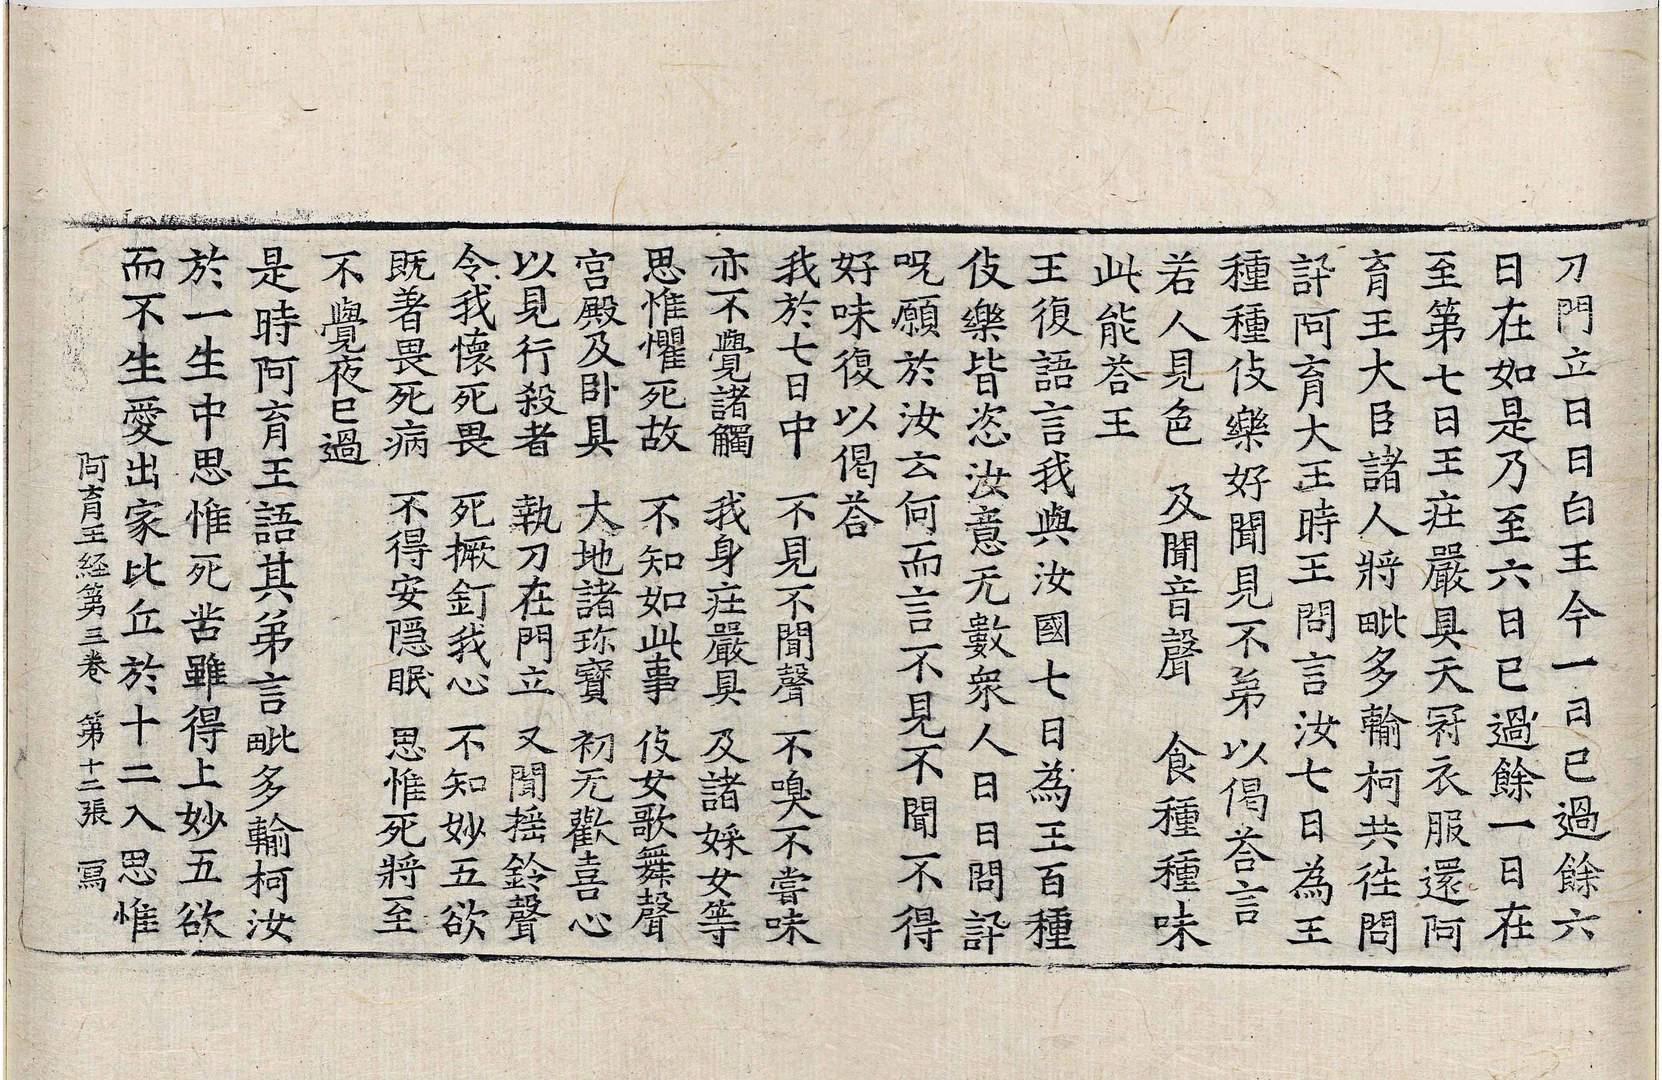 刀門立日日白王今一日已過餘六
日在如是乃至六日已過餘一日在
至第七日王莊嚴具天冠衣服還阿
育王大臣諸人將毗多輸柯共徃問
訊阿育大王時王問言汝七日為王
種種伎樂好聞見不弟以偈荅言
若人見色　及聞音聲　食種種味
此能荅王
王復語言我與汝國七日為王百種
伎樂皆恣汝意无數衆人日日問訊
呪願於汝云何而言不見不聞不得
好味復以偈荅
我於七日中　不見不聞聲　不嗅不嘗味
亦不覺諸觸　我身莊嚴具　及諸婇女等
思惟懼死故　不知如此事　伎女歌舞聲
宮殿及卧具　大地諸珎寶　初无歡喜心
以見行殺者　執刀在門立　又聞搖鈴聲
令我懷死畏　死橛釘我心　不知妙五欲
既著畏死病　不得安隱眠　思惟死將至
不覺夜已過
是時阿育王語其弟言毗多輸柯汝
於一生中思惟死苦雖得上妙五欲
而不生愛出家比丘於十二入思惟
阿育王經第三卷　第十二張　寫